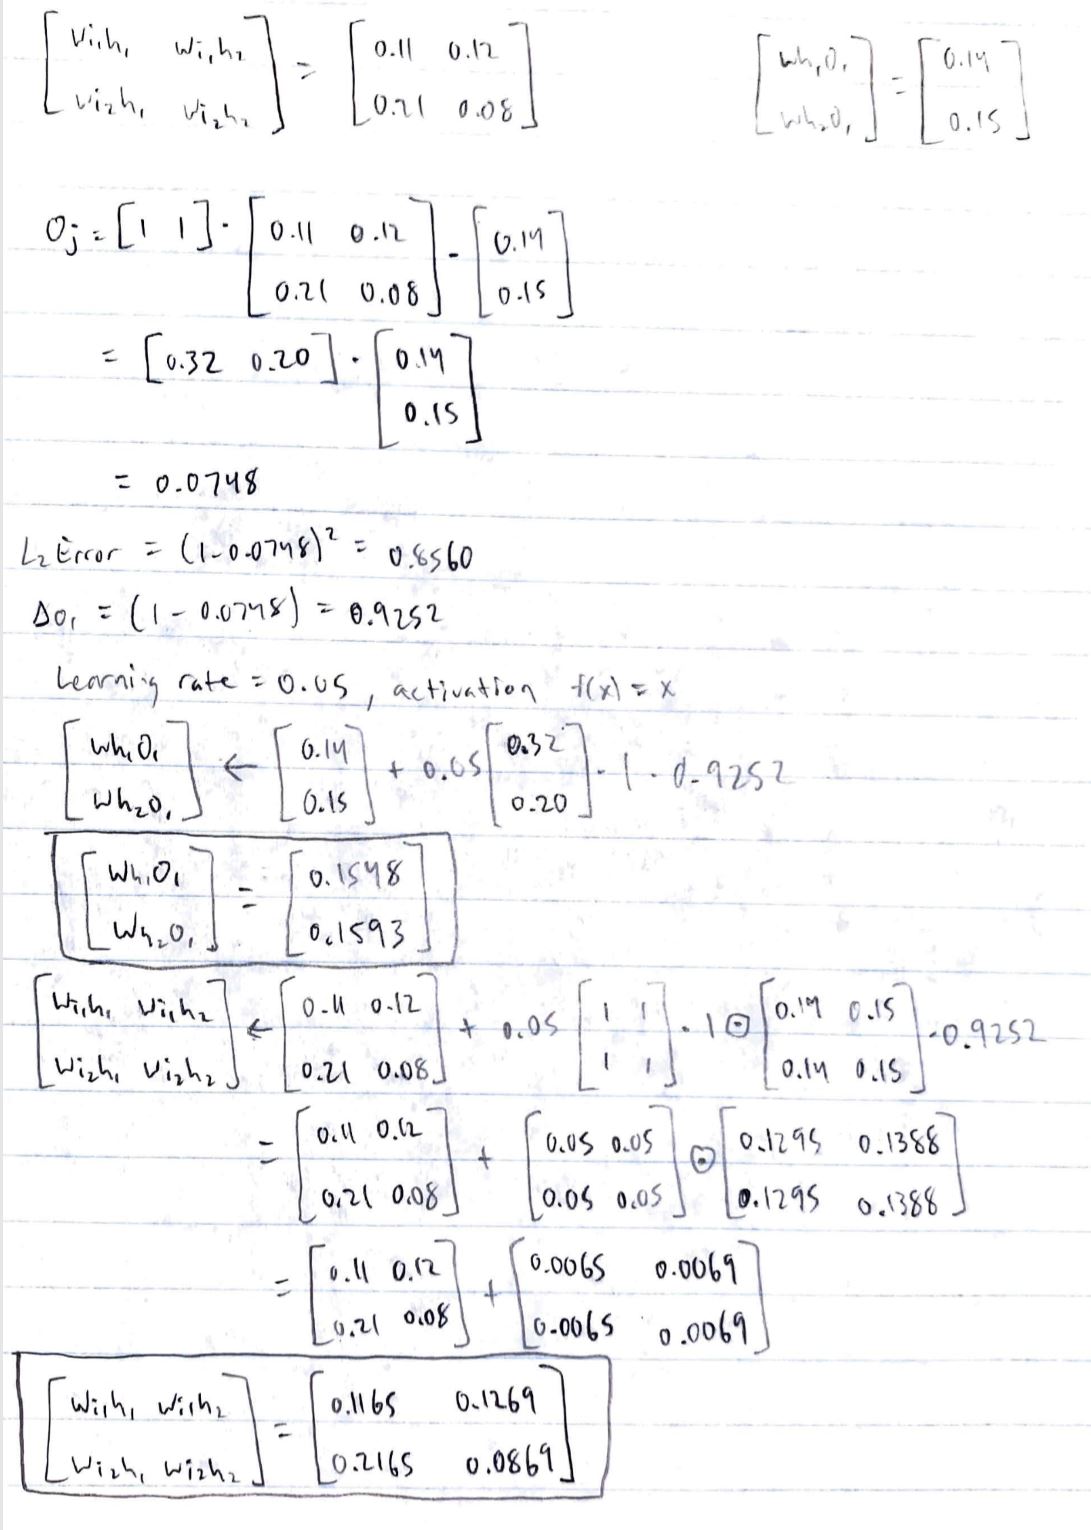 [wi₁h₁ wi₁h₂; wi₂h₁ wi₂h₂] = [0.11 0.12; 0.21 0.08] [wh₁O₁; wh₂O₁] = [0.14; 0.15]
Oj = [1 1] · [0.11 0.12; 0.21 0.08] · [0.14; 0.15]
= [0.32 0.20] · [0.14; 0.15]
= 0.0748
L₂ Error = (1-0.0748)² = 0.8560
Δo₁ = (1 - 0.0748) = 0.9252
Learning rate = 0.05, activation f(x) = x
[wh₁O₁; wh₂O₁] ← [0.14; 0.15] + 0.05 [0.32; 0.20] · 1 · 0.9252
[wh₁O₁; wh₂O₁] = [0.1548; 0.1593]
[wi₁h₁ wi₁h₂; wi₂h₁ wi₂h₂] ← [0.11 0.12; 0.21 0.08] + 0.05 [1 1; 1 1] · 1 ⊙ [0.14 0.15; 0.14 0.15] · 0.9252
= [0.11 0.12; 0.21 0.08] + [0.05 0.05; 0.05 0.05] ⊙ [0.1295 0.1388; 0.1295 0.1388]
= [0.11 0.12; 0.21 0.08] + [0.0065 0.0069; 0.0065 0.0069]
[wi₁h₁ wi₁h₂; wi₂h₁ wi₂h₂] = [0.1165 0.1269; 0.2165 0.0869]